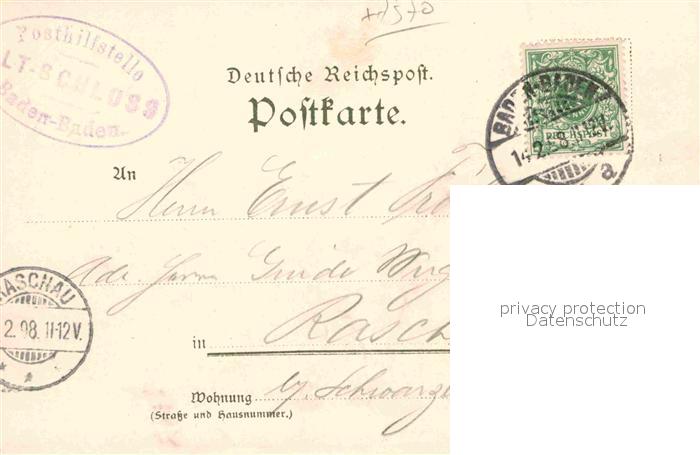 +1570
Posthilfstelle
ALT-SCHLOSS
Baden-Baden.
Deutsche Reichspost.
Postkarte.
BADEN-BADEN
REICHSPOST
14 2
a
An
Herrn Ernst
Adr. Herrn Guido
RASCHAU
2.98. 11-12V.
in Rasch
Wohnung
(Straße und Hausnummer.)
privacy protection
Datenschutz